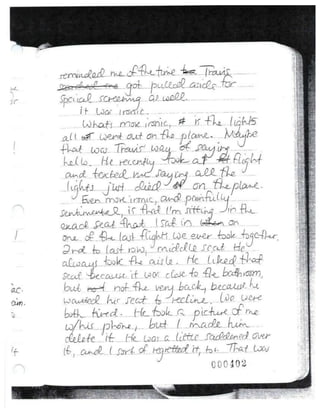 reminded me of the time Travis
got pulled aside for
special screening as well.
It was ironic.
What's more ironic, is the lights
all went out on the plane. Maybe
that was Travis' way of saying
hello. He recently took a flight
and texted me saying all the
lights just died on the plane.
Even more ironic, and painfully
sentimental, is that I'm sitting in the
exact seat that I sat in when on
one of the last flights we ever took together.
2nd to last row, middle seat. He
always took the aisle. He liked that
seat because it was close to the bathroom,
but not the very back, because he
wanted his seat to recline. We were
both tired. He took a picture of me
w/his phone, but I made him
delete it. He was a little saddened over
it, and I sort of regretted it, too. That was
000402